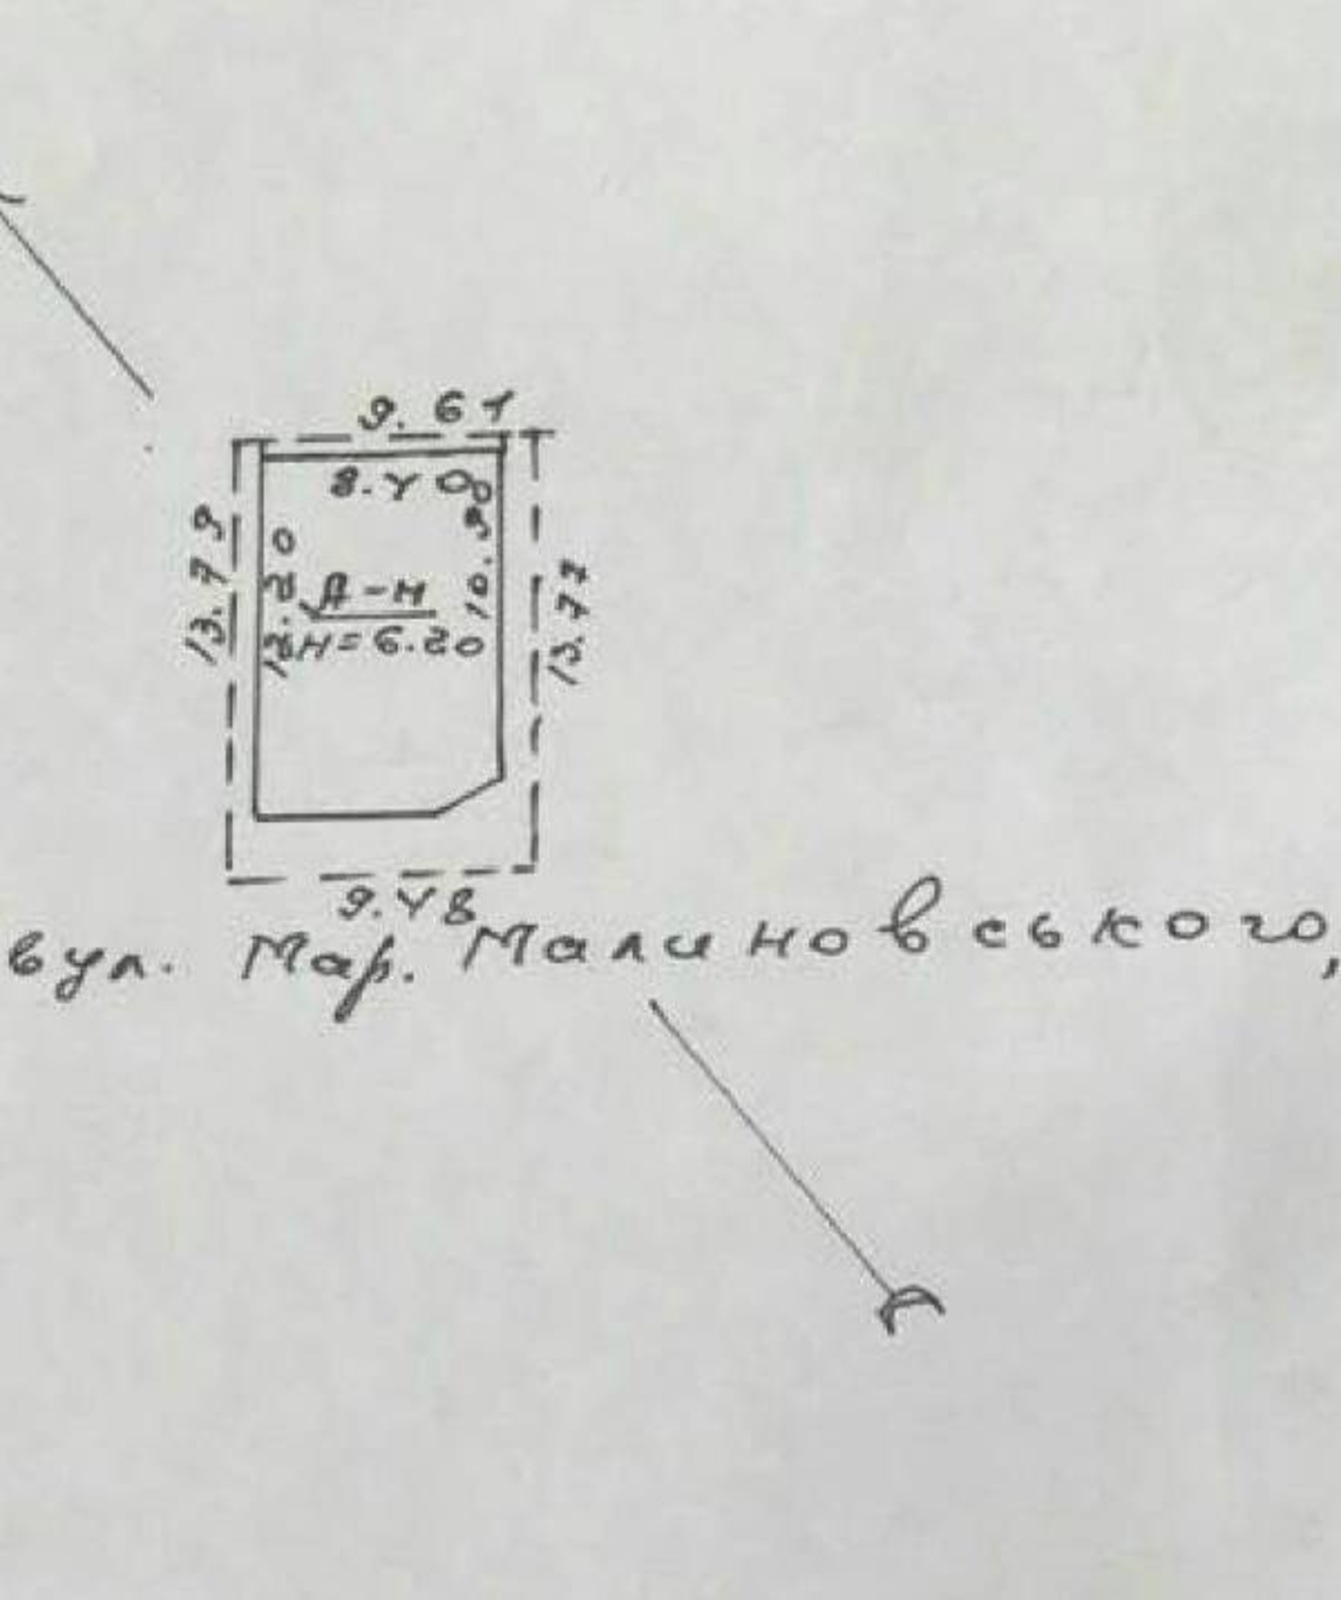 9.61
8.40
13.79
12.20
10.90
А-Н
Н=6.20
13.77
9.48
вул. Мар. Малиновського,